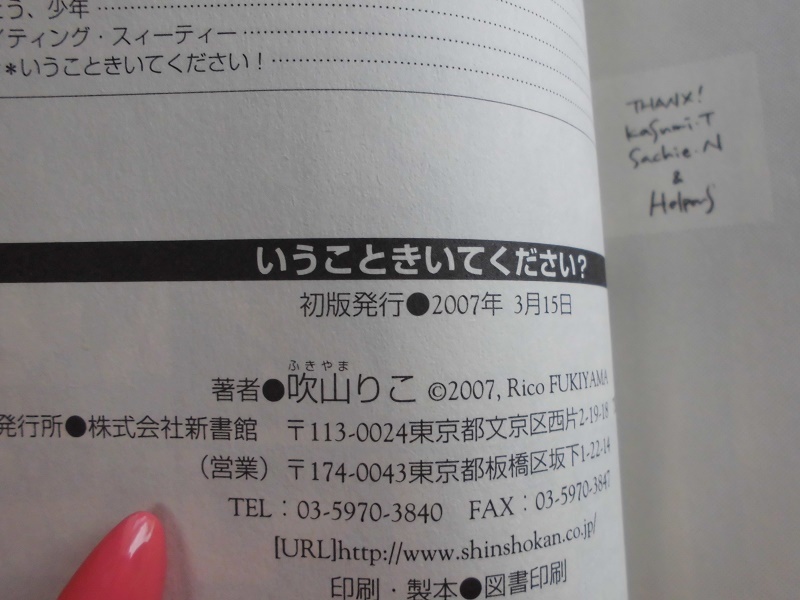 う、少年
イティング・スィーティー
*いうこときいてください！
THANX!
Kasumi.T
Sachie.N
&
Helpers
いうこときいてください?
初版発行●2007年 3月15日
ふきやま
著者●吹山りこ ©2007, Rico FUKIYAMA
発行所●株式会社新書館 〒113-0024東京都文京区西片2-19-18
（営業）〒174-0043東京都板橋区坂下1-22-14
TEL：03-5970-3840 FAX：03-5970-3847
[URL]http://www.shinshokan.co.jp/
印刷・製本●図書印刷